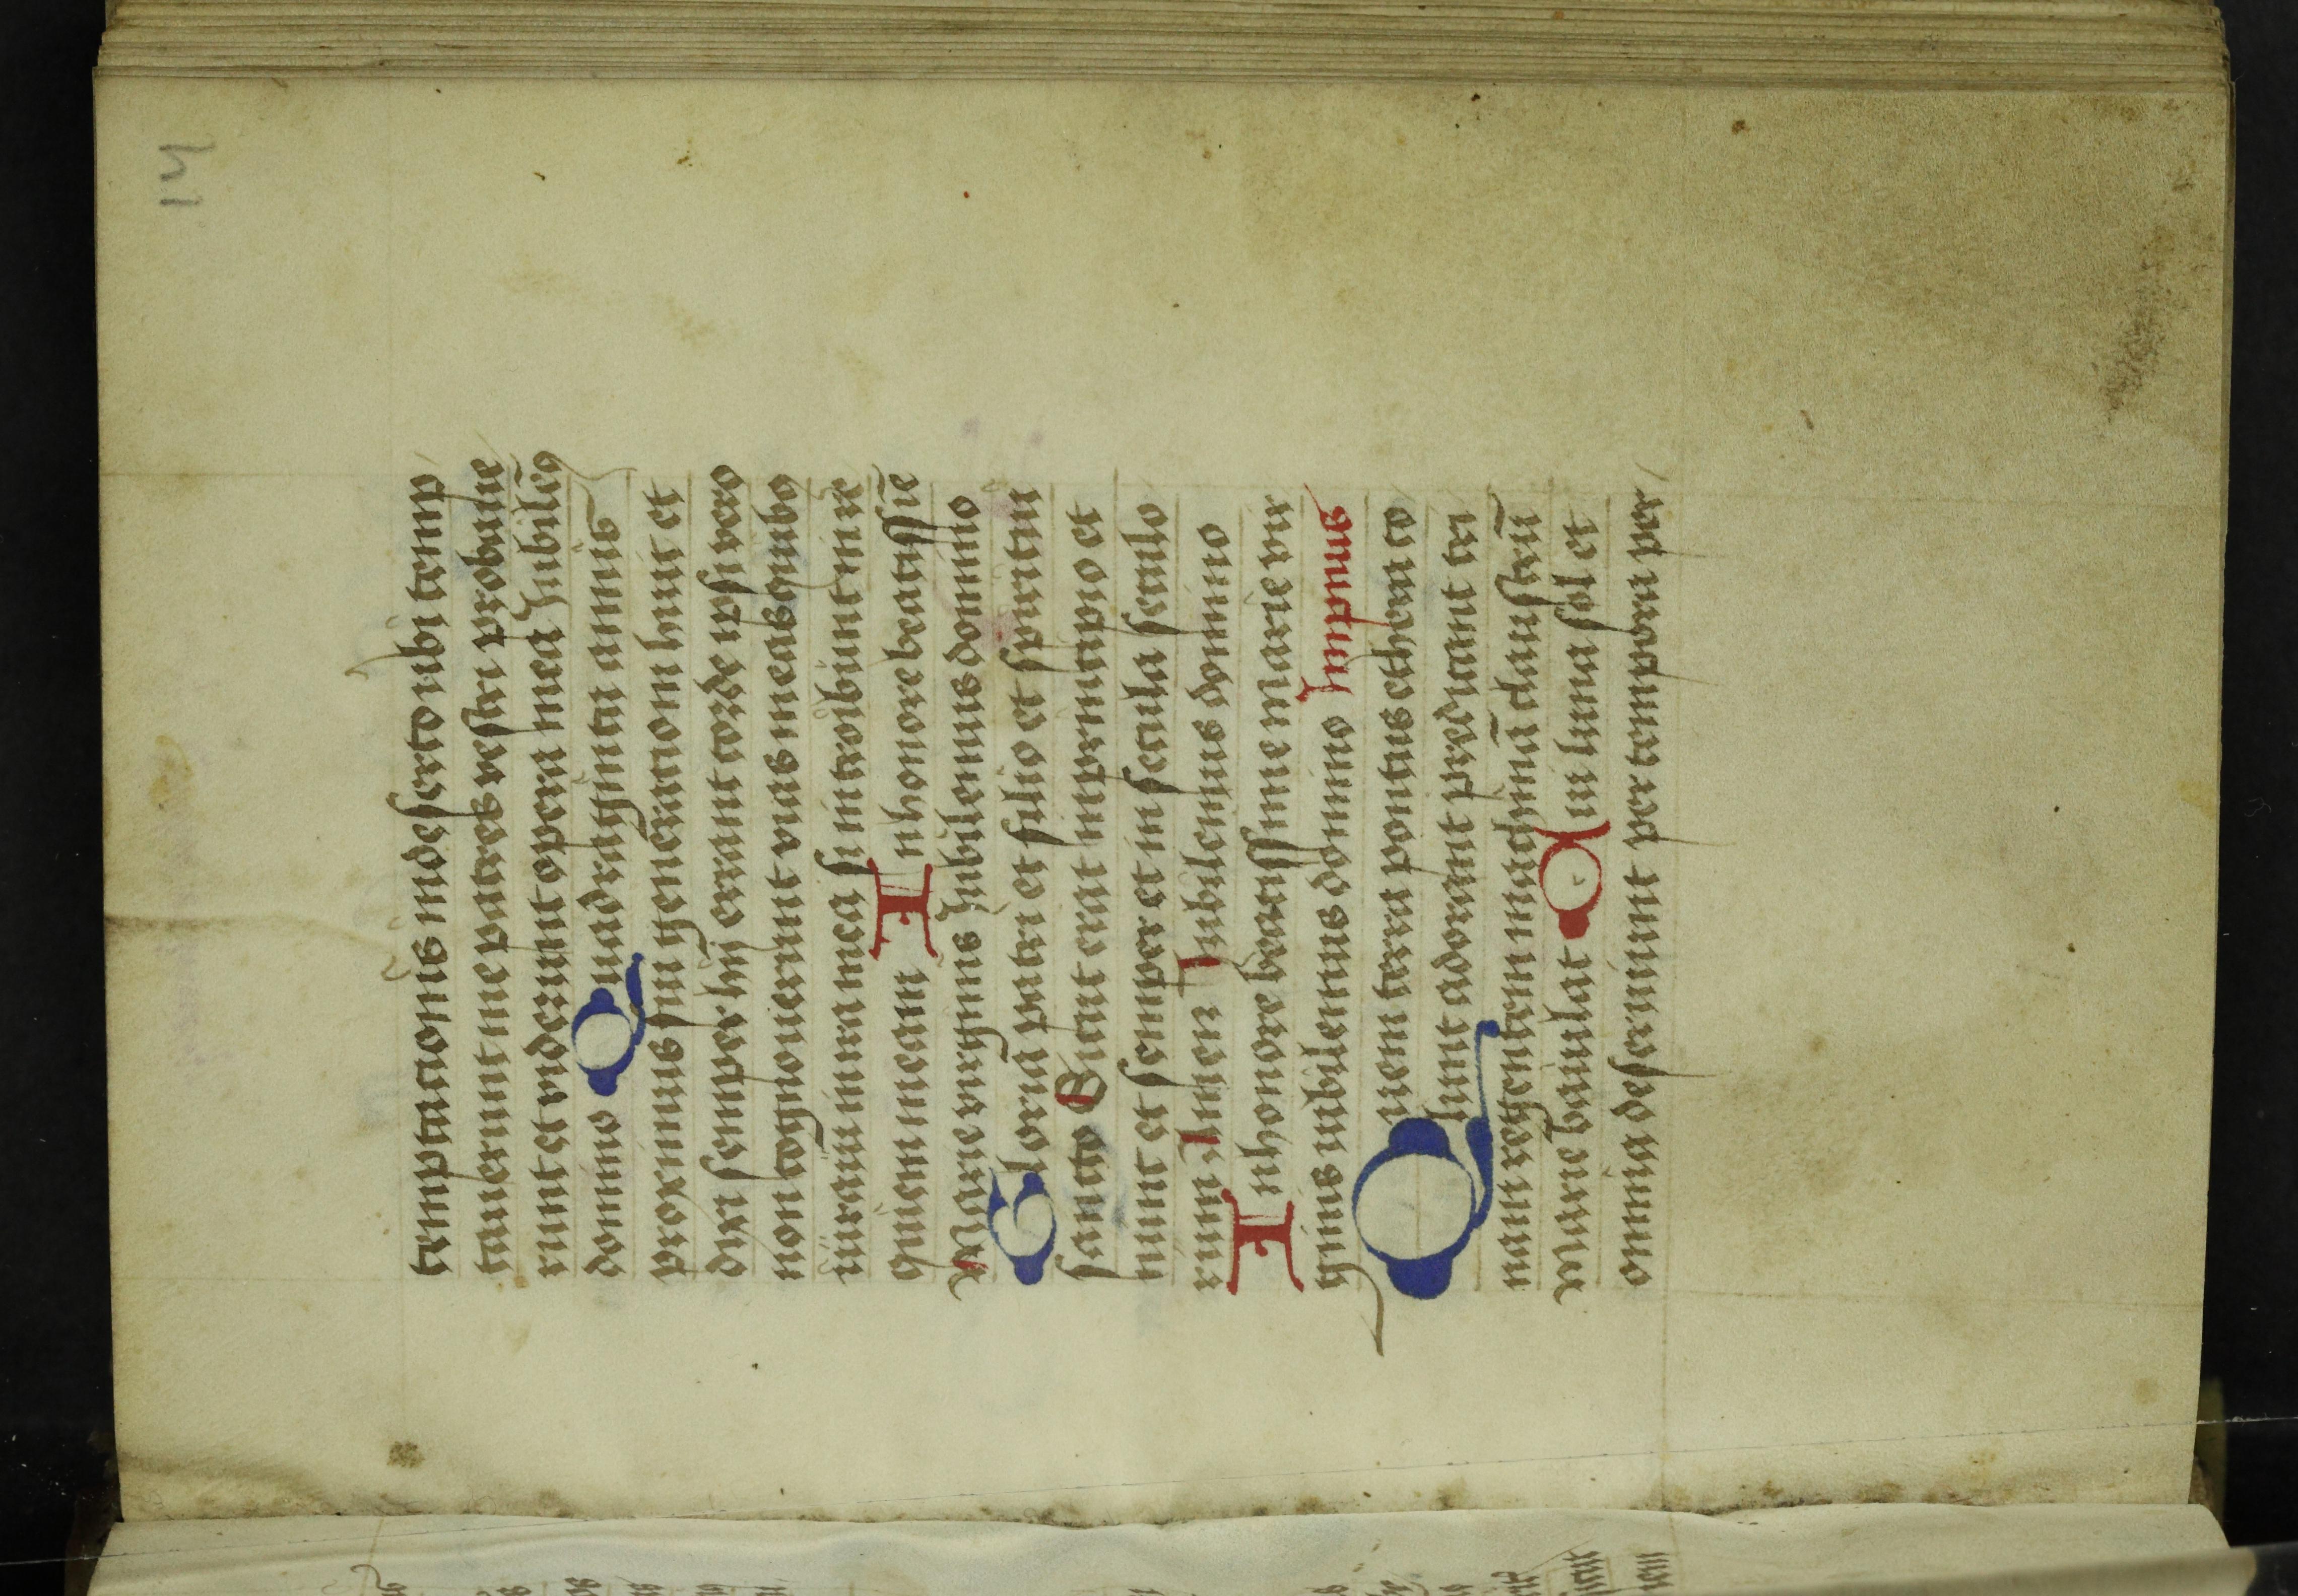 14
temptacionis in deserto ubi temp
tauerunt me patres vestri probaue
runt et viderunt opera mea Jubilem9
domino Quadraginta annis
proximus fui generacioni huic et
dixi semper hij errant corde ipsi vero
non cognouerunt vias meas quib9
iuraui in ira mea si introibunt in re
quiem meam In honore beatissime
Marie virginis Jubilemus domino
Gloria patri et filio et spiritui
sancto Sicut erat in principio et
nunc et semper et in secula seculo
rum Amen Jubilemus domino
In honore beatissime Marie vir
ginis iubilemus domino Impnus
Quem terra pontus ethera co
lunt adorant predicant tri
nam regentem machinā claustrū
Marie baiulat Cui luna sol et
omnia deseruiunt per tempora per